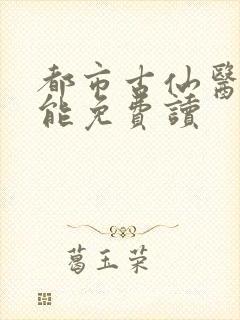 都市古仙醫
能免費讀
葛玉荣